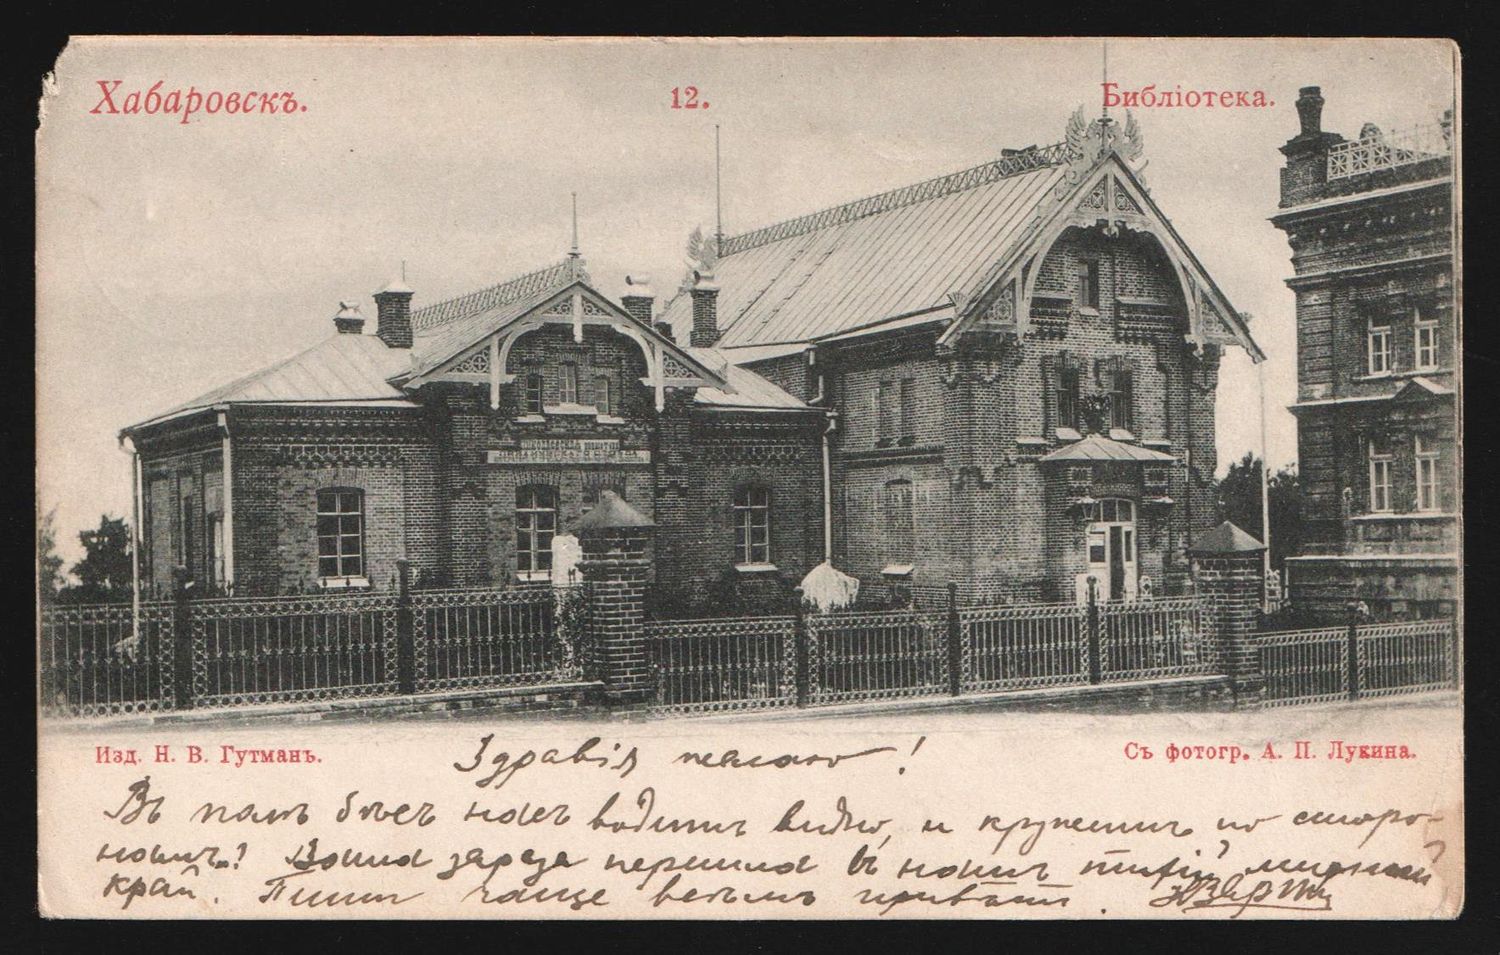 Хабаровскъ. 12. Библіотека.
Изд. Н. В. Гутманъ. Съ фотогр. А. П. Лукина.
Здравія желаю!
Въ поль бѣсъ насъ водитъ видно, и кружитъ по сторо-
намъ! Ваша зараза перешла въ нашъ тихій, мирный
край. Пиши чаще всѣмъ привѣтъ.